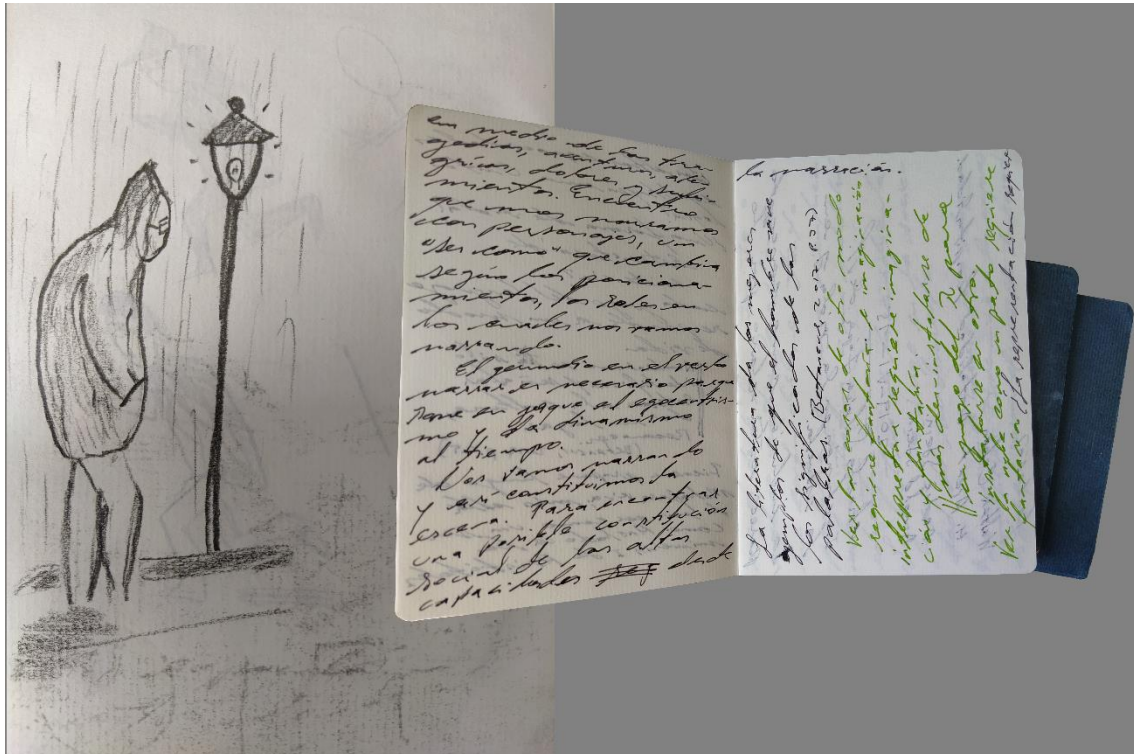 en medio de las tra-
gedias, aventuras, ale-
grías, dolores y sufri-
mientos. Encuentro
que nos narramos
con personajes, un
"ser como" que cambia
según los posiciona-
mientos, los roles en
los cuales nos vamos
narrando.
El gerundio en el verbo
narrar es necesario porque
pone en jaque el egocentris-
mo y da dinamismo
al tiempo.
Nos vamos narrando
y así constituimos la
escena. Para encontrar
una posible constitución
social de las altas
capacidades desde
la narración.
La literatura da los mejores
ejemplos de que el hombre vive
los significados de las
palabras.
Ver las cosas de otro modo
requiere fantasía e imaginación
interpretar requiere imagina-
ción y fantasía.
de
para
instalarse en otro.
Ver a este un pato requiere
fantasía (La representación